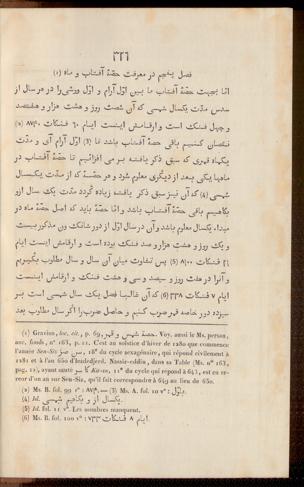 ٣٢٦
فصل پنجم در معرفت حصّهٔ آفتاب و ماه (1)
امّا بجهت حصّهٔ آفتاب ما بین اوّل آرام و اوّل ورشی را در هر سال از
سدس مدّت یکسال شمسی که آن شصت روز و هشت هزار و هفتصد
و چهل فنک است و ارقامش اینست ایام ٦٠ فنکات ٨٧۴٠ (2)
نقصان کنیم باقی حصّهٔ آفتاب باشد تا (3) اوّل آرام آی و مدّت
یکماه قمری که سبق ذکر یافته بر می افزائیم تا حصّهٔ آفتاب در
ماهها یکی بعد از دیگری معلوم شود و هر حصّه که از مدّت یکسال
شمسی (4) که آن نیز سبق ذکر یافته زیاده گردد مدّت یک سال ازو
بکاهیم باقی حصّهٔ آفتاب باشد و امّا حصّهٔ باید که اصل حصّهٔ ماه در
مبداء یکسال معلوم باشد و آن در سال اوّل از دور شانک ون مذکور بیست
و یک روز و هشت هزار و صد فنک بوده است و ارقامش اینست ایام
٢١ فنکات ٨١٠٠ (5) پس تفاوت میان آن سال و سال مطلوب بگیریم
و آنرا در هفت روز و سیصد و سی و هشت فنک و ارقامش اینست
ایام ٧ فنکات ٣٣٨ (6) که آن غالبا فضل یک سال شمسی است بر
سیزده دور خاصه قمر ضرب کنیم و حاصل ضرب را اگر سال مطلوب بعد
(1) Gravius, loc. cit., p. 69, حصّهٔ شمس و قمر. Voy. aussi le Ms. person,
anc. fonds, n° 163, p. 11. C'est au solstice d'hiver de 1280 que commence
l'année Sen-Siz سن صز, 18° du cycle sexagénaire, qui répond civilement à
1281 et à l'an 650 d'Iezdedjerd. Nassir-eddin, dans sa Table (Ms. n° 163,
pag. 11), ayant omis سا Ka-su, 11° du cycle qui répond à 643, est en er-
reur d'un an sur Sen-Siz, qu'il fait correspondre à 649 au lieu de 650.
(2) Ms. B. fol. 99 v° : ٨٧۴٠ — (3) Ms. A. fol. 10 v° :
(4) Id. یکسال از و بکاهیم شمسی.
(5) Id. fol. 11 v°. Les nombres manquent.
(6) Ms. B. fol. 100 v° : ایام ٨ فنکات ٧٣٣